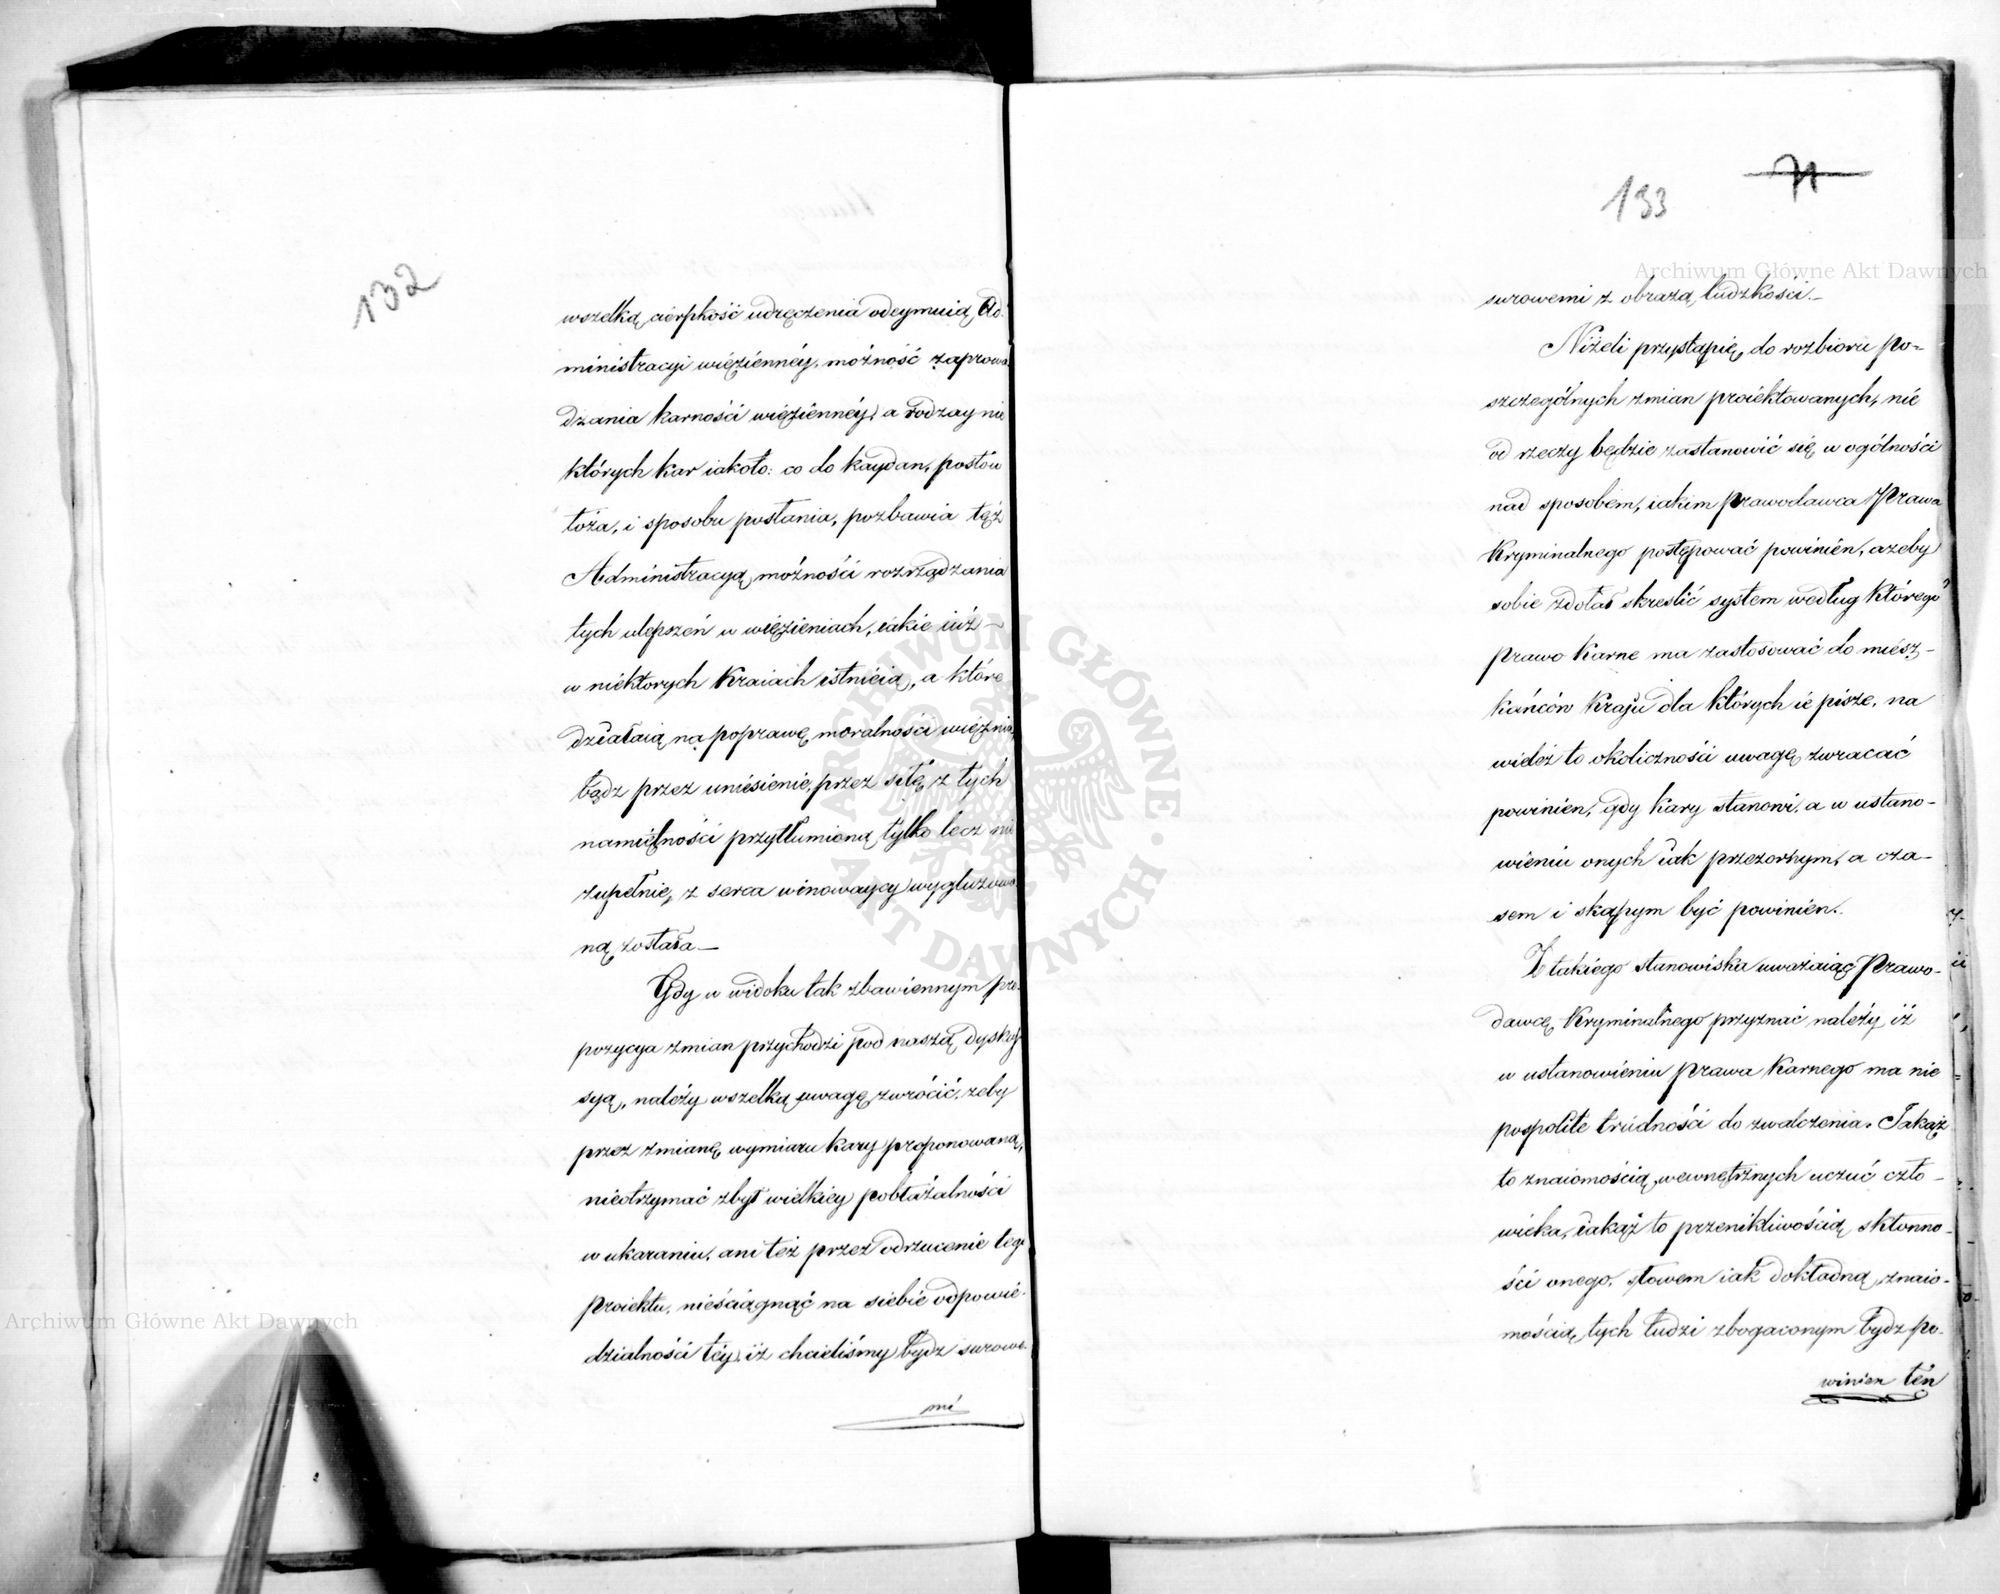 132
wszelką cierpkość udręczenia odeymuią Ad-
ministracyi więzienney, możność zaprowa-
dzania karności więzienney, a rodzay nie
których kar iakoto: co do kaydan, postów
łoża, i sposobu posłania, pozbawia też
Administracyą możności rozrządzania
tych ulepszeń w więzieniach, iakie iuż –
w niektorych Kraiach istnieią, a które
działaią na poprawę moralności więznia,
bądz przez uniesienie, przez siłę z tych
namiętności przytłumioną tylko lecz nie
zupełnie, z serca winowaycy wygluzowa-
ną została –
Gdy w widoku tak zbawiennym pro-
pozycya zmian przychodzi pod naszą dyskus-
syą, należy wszelką uwagę zwrócić, żeby
przez zmianę wymiaru kary proponowaną,
nieotrzymać zbyt wielkiey pobłażalności
w ukaraniu, ani też przez odrzucenie tego
proiektu, nieściągnąć na siebie odpowie-
dzialności tey, iż chcieliśmy bydz surowe-
mi
133
71
surowemi z obrazą ludzkości. –
Niżeli przystąpię do rozbioru po-
szczególnych zmian proiektowanych, nie
od rzeczy będzie zastanowić się w ogólności
nad sposobem, iakim prawodawca Prawa
Kryminalnego postępować powinien, azeby
sobie zdołał skreslić system według którego
prawo Karne ma zastosować do miesz-
kańców Kraju dla których ie pisze, na
wieleż to okoliczności uwagę zwracać
powinien, gdy kary stanowi, a w ustano-
wieniu onych iak przezornym, a cza-
sem i skąpym być powinien.
Z takiego stanowiska uważaiąc Prawo-
dawcę Kryminalnego przyznać należy iż
w ustanowieniu prawa Karnego ma nie
pospolite trudności do zwalczenia. Jakąż
to znaiomością wewnętrznych uczuć czło-
wieka, iakąż to przenikliwością skłonno-
ści onego, słowem iak dokładną znaio-
mością tych ludzi zbogaconym bydz po-
winien ten
Archiwum Główne Akt Dawnych
Archiwum Główne Akt Dawnych
ARCHIWUM GŁÓWNE AKT DAWNYCH